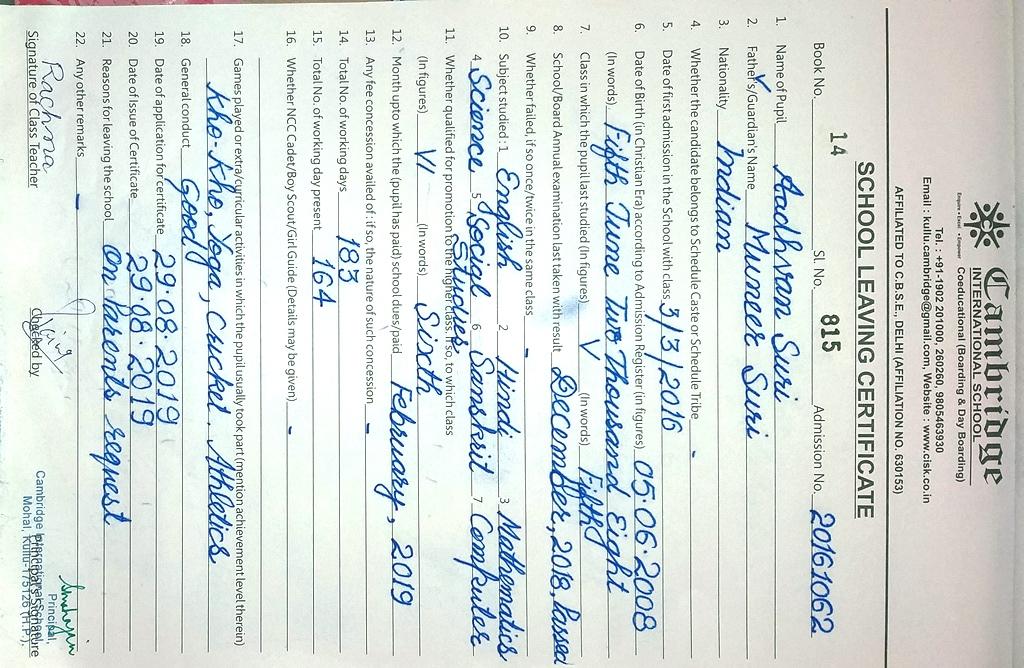 Cambridge
INTERNATIONAL SCHOOL
Enquire • Excel • Empower Coeducational (Boarding & Day Boarding)
Tel. : +91-1902 201000, 260260, 9805463930
Email : kullu.cambridge@gmail.com, Website : www.cisk.co.in
AFFILIATED TO C.B.S.E., DELHI (AFFILIATION NO. 630153)
SCHOOL LEAVING CERTIFICATE
Book No. 14 Sl. No. 815 Admission No. 20161062
1. Name of Pupil Aadhvan Suri
2. Father's/Guardian's Name Muneer Suri
3. Nationality Indian
4. Whether the candidate belongs to Schedule Caste or Schedule Tribe -
5. Date of first admission in the School with class 3/3/2016
6. Date of Birth (in Christian Era) according to Admission Register (in figures) 05.06.2008
(In words) Fifth June Two Thousand Eight
7. Class in which the pupil last studied (In figures) V (In words) Fifth
8. School/Board Annual examination last taken with result December, 2018, Passed
9. Whether failed, if so once/twice in the same class -
10. Subject studied : 1 English 2 Hindi 3 Mathematics
4 Science 5 Social Studies 6 Sanskrit 7 Computer
11. Whether qualified for promotion to the higher class, if so, to which class
(In figures) VI (In words) Sixth
12. Month upto which the (pupil has paid) school dues/paid February, 2019
13. Any fee concession availed of : if so, the nature of such concession -
14. Total No. of working days 183
15. Total No. of working day present 164
16. Whether NCC Cadet/Boy Scout/Girl Guide (Details may be given) -
17. Games played or extra/curricular activities in which the pupil usually took part (mention achievement level therein)
Kho-Kho, Yoga, Cricket, Athletics
18. General conduct Good
19. Date of application for certificate 29.08.2019
20. Date of Issue of Certificate 29.08.2019
21. Reasons for leaving the school On Parents request
22. Any other remarks -
Rachna
Signature of Class Teacher Checked by Principal's Signature
Principal,
Cambridge International School,
Mohal, Kullu-175126 (H.P.).